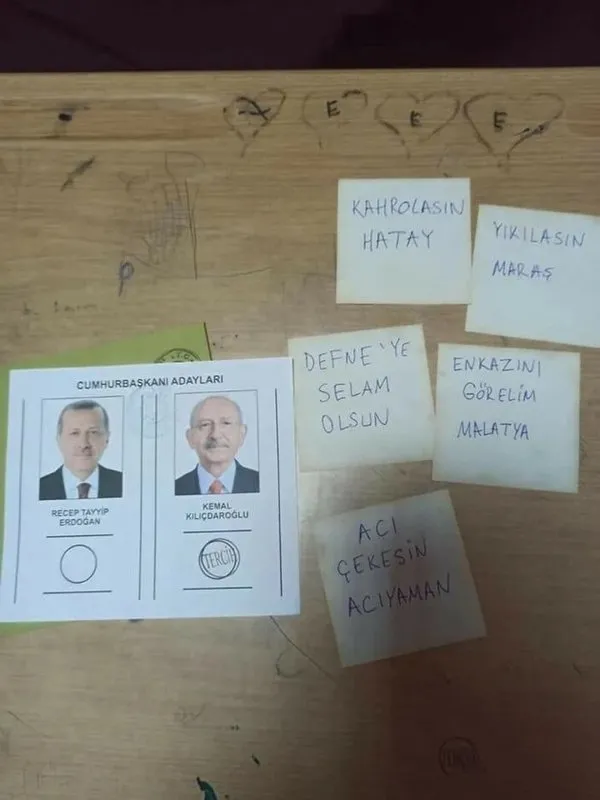 E
E
E
KAHROLASIN
HATAY
YIKILASIN
MARAŞ
DEFNE'YE
SELAM
OLSUN
ENKAZINI
GÖRELİM
MALATYA
CUMHURBAŞKANI ADAYLARI
RECEP TAYYİP
ERDOĞAN
KEMAL
KILIÇDAROĞLU
TERCİH
ACI
ÇEKESİN
ACIYAMAN